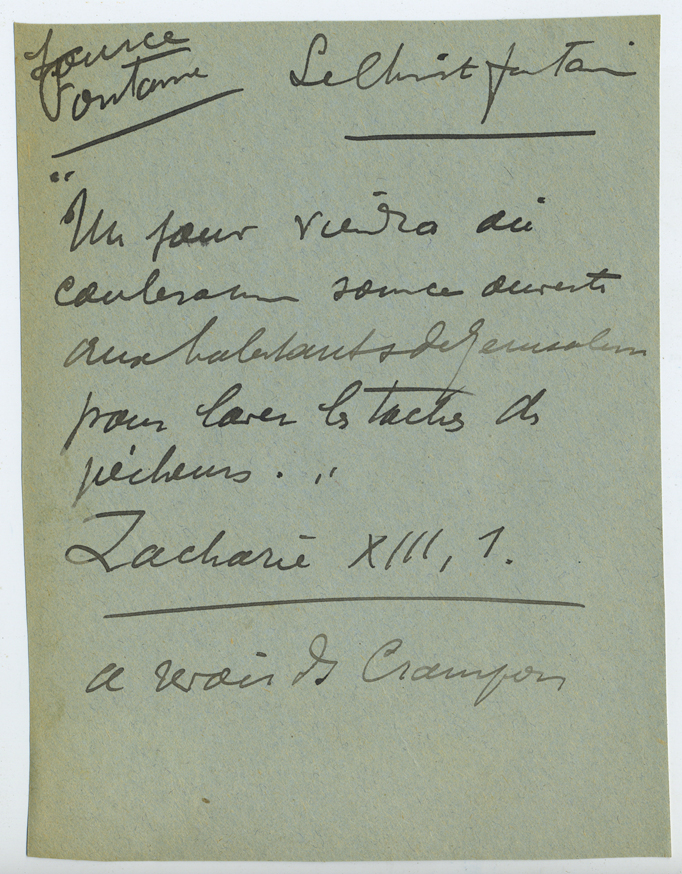 Source
Fontaine
Le Christ fontaine
"Un jour viendra où
coulera une source ouverte
aux habitants de Jerusalem
pour laver les taches de
pécheurs. "
Zacharie XIII, 1.
a revoir ds Crampon